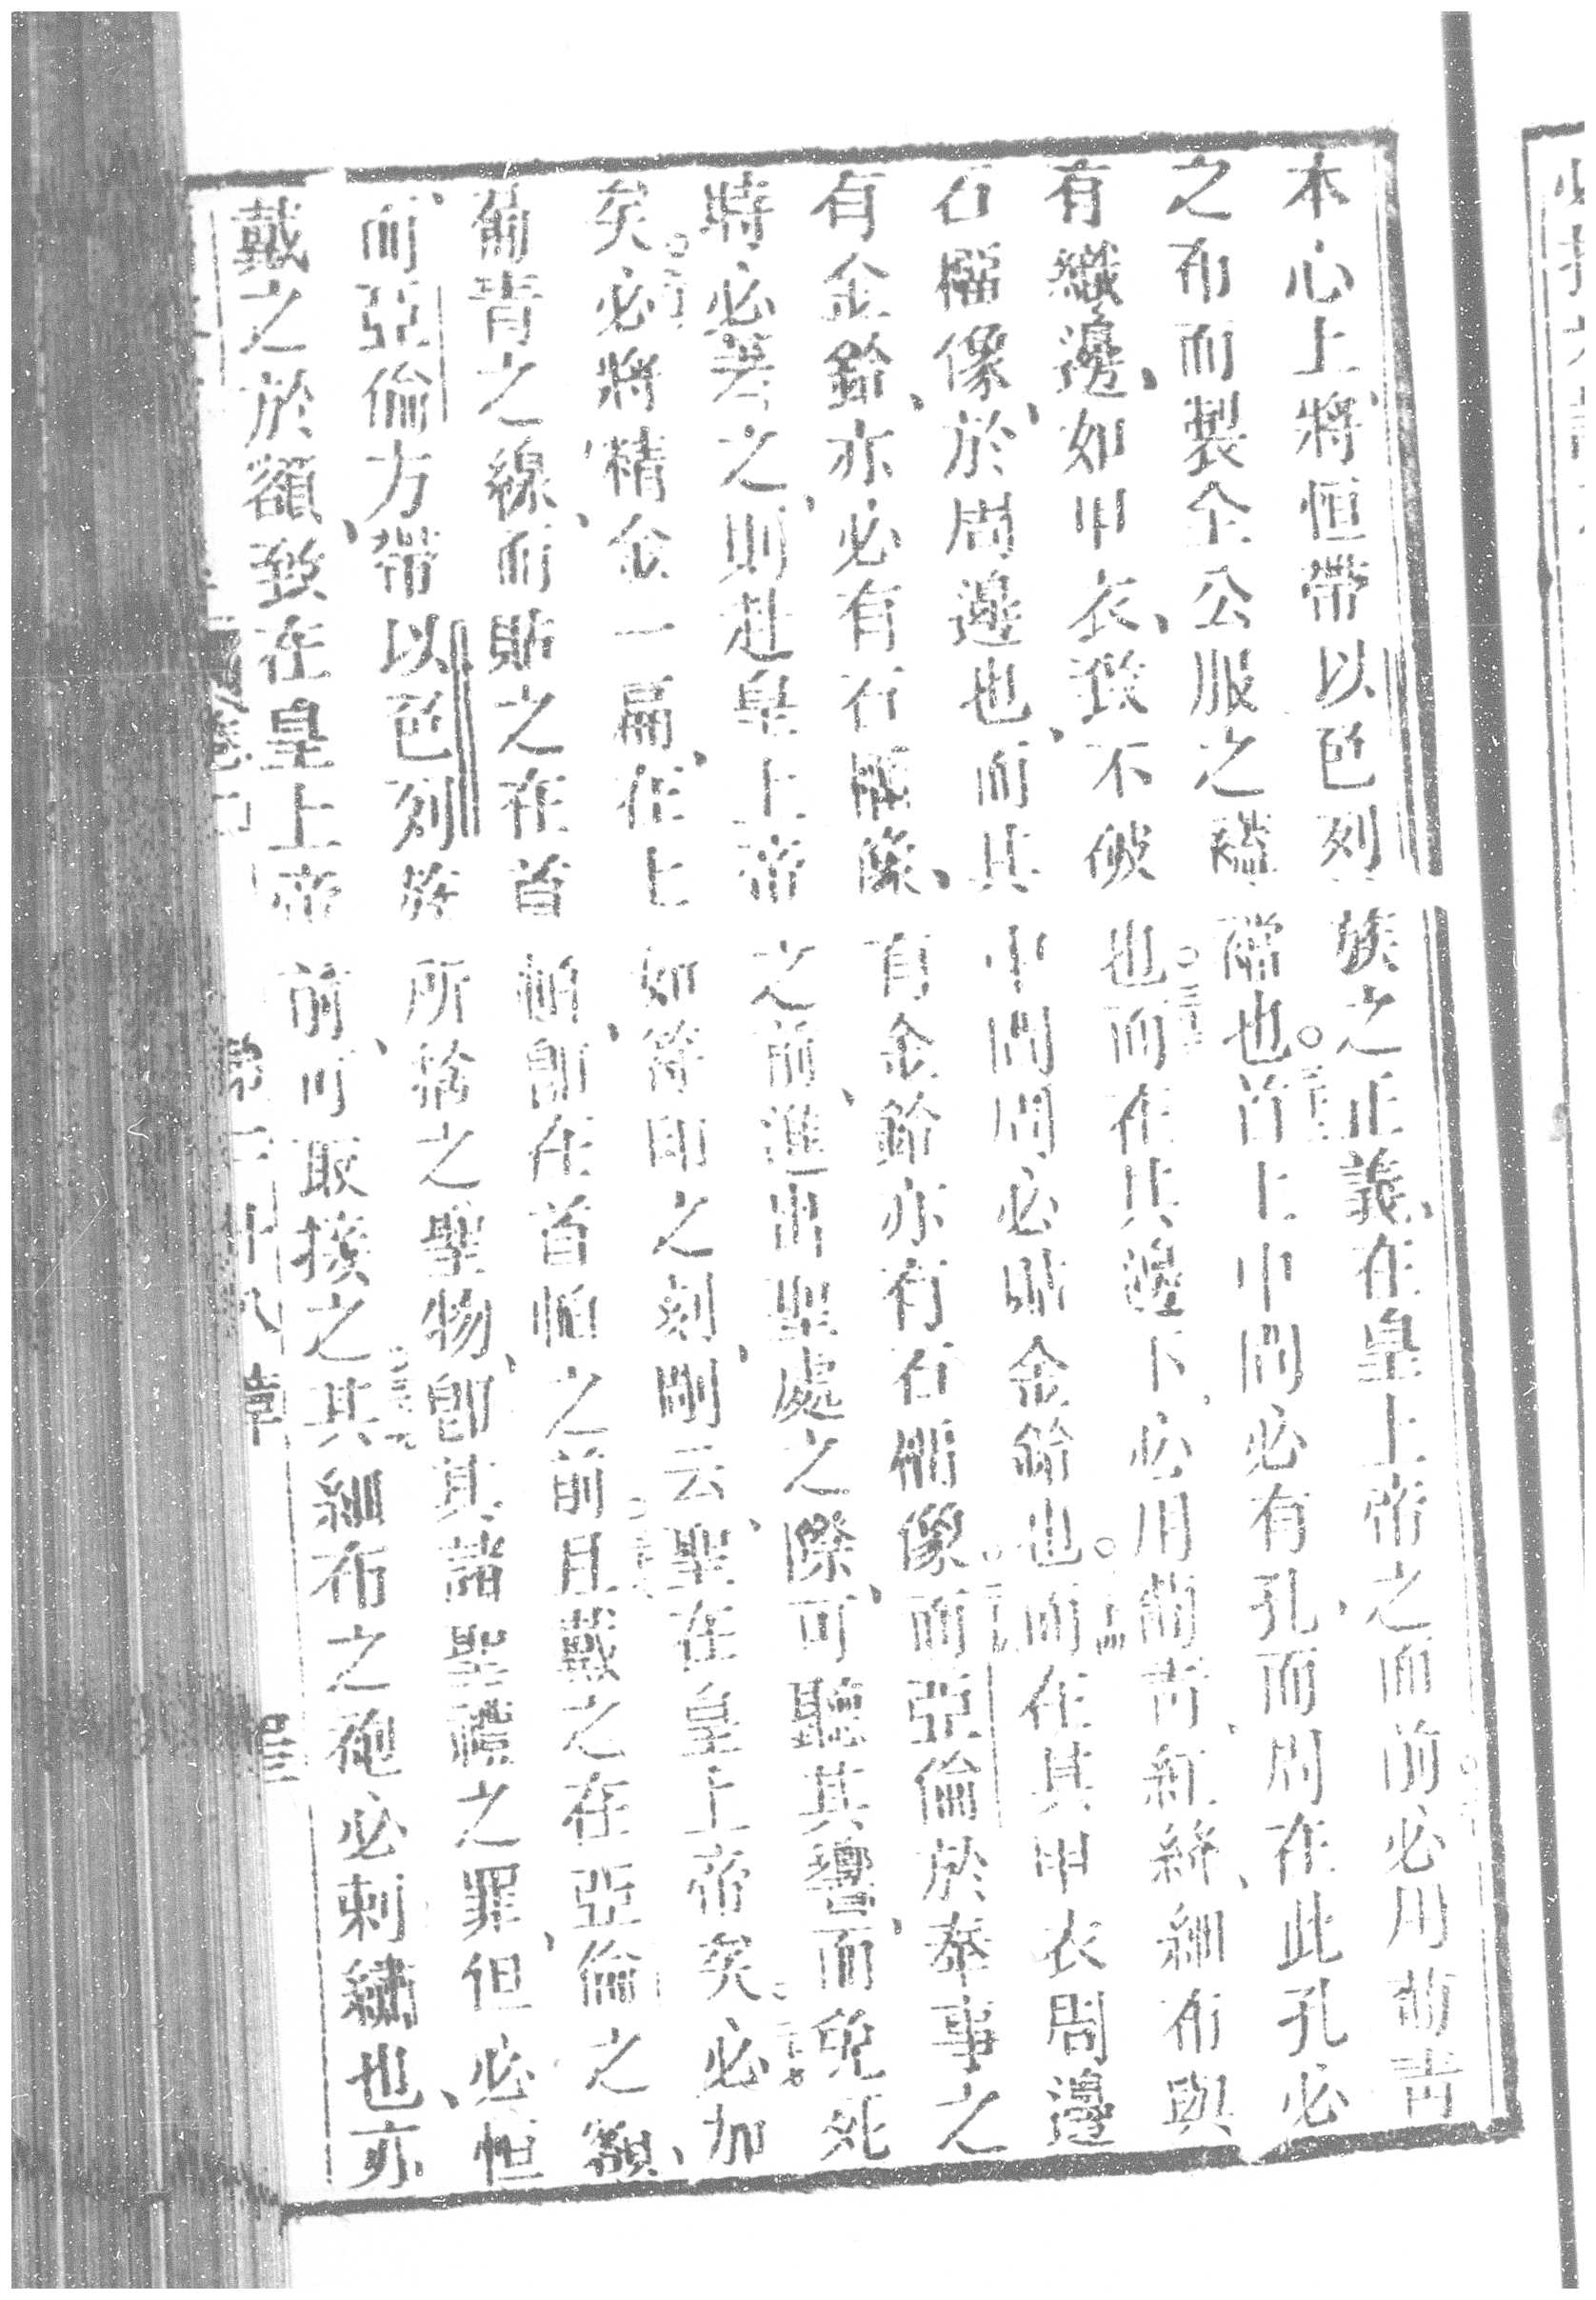 本心上、將恒帶以色列族之正義、在皇上帝之面前。必用葡青
之布而製全公服之𧞤襠也。首上中間必有孔、而周在此孔必
有織邊、如甲衣、致不破也。而在其邊下、必用葡青、紅絳、細布與
石榴像、於周邊也、而其中間周必貼金鈴也。而在其甲衣周邊
有金鈴、亦必有石榴像、有金鈴亦有石榴像。而亞倫於奉事之
時必著之、則赴皇上帝之前、進出聖處之際、可聽其響、而免死
矣。必將精金一扁、在上如符印之刻、剛云、聖在皇上帝矣。必加
葡青之線、而貼之在首帕、即在首帕之前。且戴之在亞倫之額、
而亞倫方帶以色列族所捨之聖物、即其諸聖禮之罪、但必恒
戴之於額、致在皇上帝前、可取接之。其細布之袍必刺繡也、亦
第二十八章